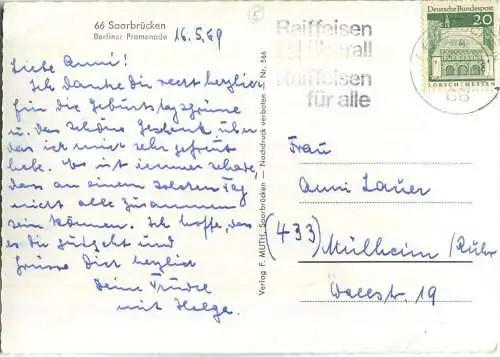 66 Saarbrücken
Berliner Promenade
16.5.69
Liebe Anni!
Ich danke dir recht herzlich
für die Geburtstagsgrüsse
u. das schöne Geschenk über
das ich mich sehr gefreut
habe. Es ist immer schade,
dass an einem solchen Tag
nicht alle zusammen
sein können. Ich hoffe, dass
es dir gut geht und
grüsse Dich herzlich
Deine Trudel
mit Helga.
Verlag F. MUTH, Saarbrücken — Nachdruck verboten S. Nr. 566
Raiffeisen
ist überall
Raiffeisen
für alle
66
Deutsche Bundespost
20
LORSCH/HESSEN
Frau
Anni Lauer
(433) Mülheim/Ruhr
19